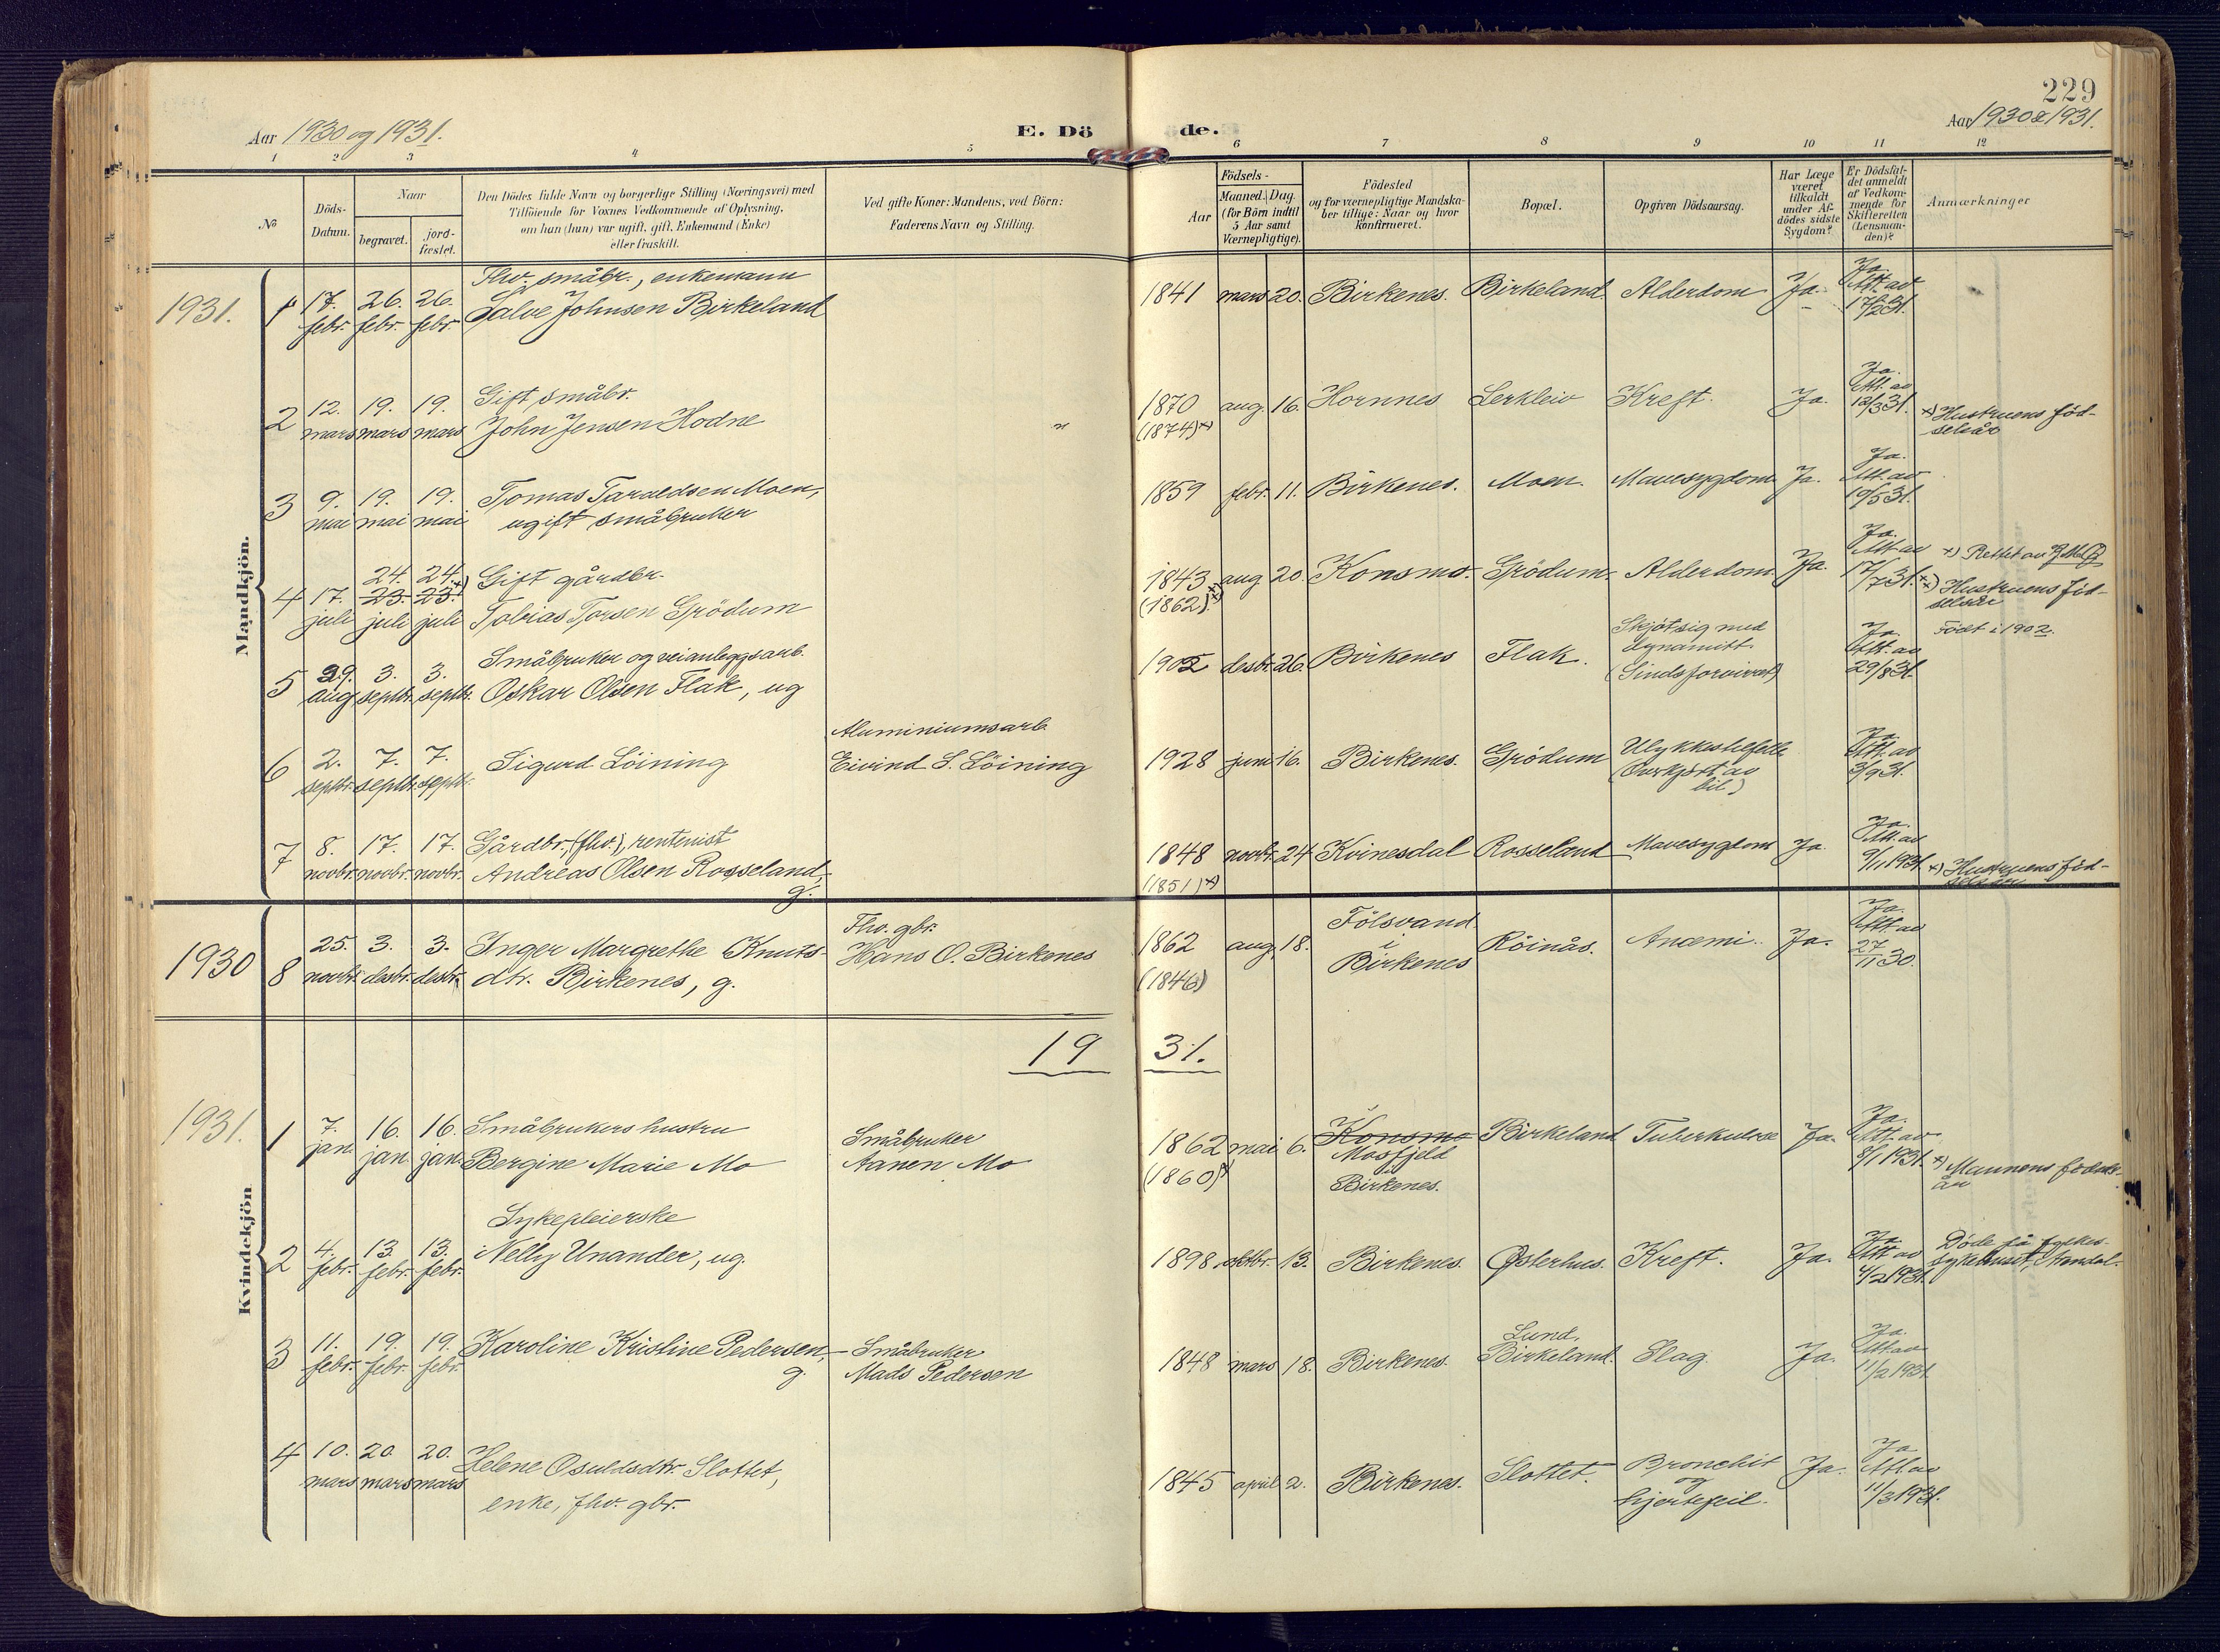 229
Aar 1930 og 1931.
E. Dö
de.
Aar 1930 & 1931.
1 2 3 4 5 6 7 8 9 10 11 12
No
Döds-
Datum.
Naar
begravet.
jord-
fæstet.
Den Dödes fulde Navn og borgerlige Stilling (Næringsvei) med
Tilföiende for Voxnes Vedkommende af Oplysning,
om han (hun) var ugift, gift, Enkemand (Enke)
eller fraskilt.
Ved gifte Koner: Mandens, ved Börn:
Faderens Navn og Stilling.
Födsels-
Aar
Maaned. Dag.
(for Börn indtil
5 Aar samt
Værnepligtige).
Födested
og for værnepligtige Mandska-
ber tillige: Naar og hvor
konfirmeret.
Bopæl.
Opgiven Dödsaarsag.
Har Læge
været
tilkaldt
under Af-
dödes sidste
Sygdom?
Er Dödsfal-
det anmeldt
af Vedkom-
mende for
Skifteretten
(Lensman-
den)?
Anmærkninger
Mandkjön.
1931.
1 17. febr. 26. febr. 26. febr.
Fhv. småbr., enkemann
Salve Johnsen Birkeland
1841 mars 20. Birkenes. Birkeland. Alderdom Ja.
Ja.
Att. av
17/2 31.
2 12. mars 19. mars 19. mars
Gift småbr.
John Jensen Hodne
"
1870 aug. 16. Hornnes Lerkleiv Kreft. Ja.
(1874) x)
Ja.
Att. av
12/3 31.
x) Hustruens föd-
selsår
3 9. mai 19. mai 19. mai
Tomas Taraldsen Moen,
ugift småbruker
1859 febr. 11. Birkenes. Moen. Mavesygdom Ja.
Ja.
Att. av
10/5 31.
4 17. juli 24. 23. juli 24. 23. juli x)
Gift gårdbr.
Tobias Torsen Grödum
1843 aug 20. Konsmo. Grödum. Alderdom Ja.
(1862) xx)
Ja.
Att. av
17/7 31.
x) Rettet av
xx) Hustruens föd-
selsår
5 29. aug. 3. septbr. 3. septbr.
Småbruker og veianleggsarb.
Oskar Olsen Flak, ug
1902 desbr. 26. Birkenes Flak.
Skjöt sig med
dynamitt.
(Sindsforvirret)
Ja.
Att. av
29/8 31.
Födt i 1902.
6 2. septbr. 7. septbr. 7. septbr.
Sigurd Löining
Aluminiumsarb.
Eivind S. Löining
1928 juni 16. Birkenes. Grödum
Ulykkestilfelle
(Overkjört av
bil)
Ja.
Att. av
3/9 31.
7 8. novbr. 17. novbr. 17. novbr.
Gårdbr. (fhv.), rentenist
Andreas Olsen Rosseland,
g.
1848 novbr. 24 Kvinesdal Rosseland Mavesygdom Ja.
(1851) x)
Ja.
Att. av
9/11 1931.
x) Hustruens föd-
selsår
1930
8 25. novbr. 3. desbr. 3. desbr.
Inger Margrethe Knuts-
dtr. Birkenes, g.
Fhv. gbr.
Hans O. Birkenes
1862 aug. 18.
(1846)
Fölsvand
i
Birkenes
Röinås. Anæmi. Ja.
Ja.
Att. av
27/11 30.
19 31.
Kvindekjön
1931.
1 7. jan. 16. jan. 16. jan.
Småbrukers hustru
Bergine Marie Mo
Småbruker
Aanen Mo
1862 mai 6.
(1860) x)
Konsmo
Mosfjeld
i
Birkenes.
Birkeland Tuberkulose Ja.
Ja.
Att. av
8/1 1931.
x) Mannens födsels-
år
2 4. febr. 13. febr. 13. febr.
Sykepleierske
Nelly Unander, ug.
1898 oktbr. 13. Birkenes. Østerhus. Kreft. Ja.
Ja.
Att av
4/2 1931.
Døde på fylkes-
sykehuset, Arendal.
3 11. febr. 19. febr. 19. febr.
Karoline Kristine Pedersen,
g.
Småbruker
Mads Pedersen
1848 mars 18. Birkenes.
Lund.
Birkeland. Slag. Ja.
Ja.
Att. av
11/2 1931.
4 10. mars 20. mars 20. mars
Helene Osuldsdtr. Slottet,
enke, fhv. gbr.
1845 april 2. Birkenes. Slottet.
Bronchit
og
hjertefeil.
Ja.
Ja
Att. av
11/3 1931.